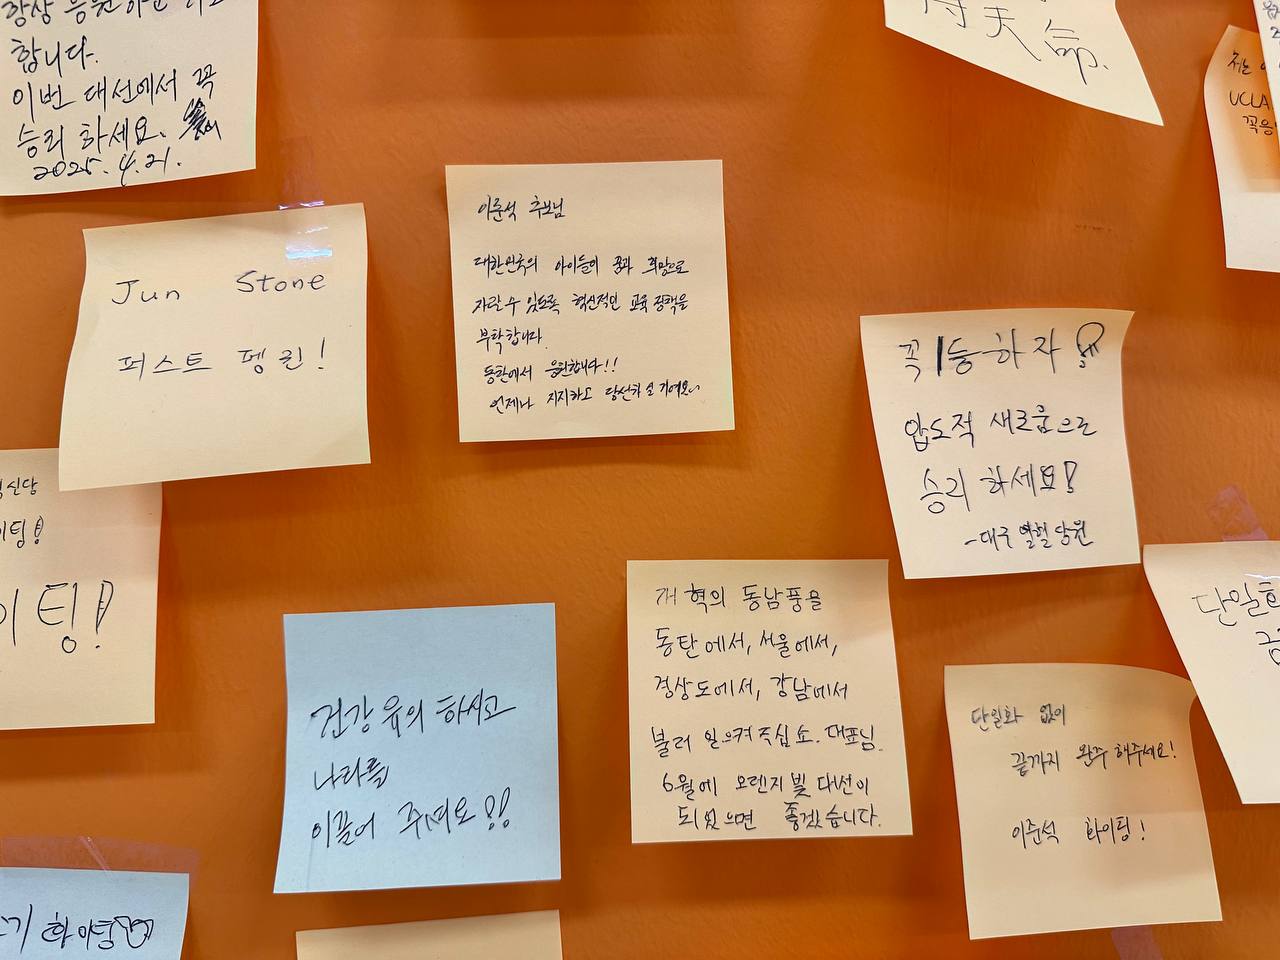 합니다.
이번 대선에서 꼭
승리 하세요.
2025. 4. 21.
Jun Stone
퍼스트 펭귄!
이준석 후보님
대한민국의 아이들이 꿈과 희망으로
자랄 수 있도록 혁신적인 교육 정책을
부탁합니다.
동탄에서 응원합니다!!
언제나 지지하고 당선하실 기여오~
天命.
UCLA
꼭 1등 하자
압도적 새로움으로
승리 하세요!
-대구 열혈 당원
신당
이팅!
이팅!
건강 유의 하시고
나라를
이끌어 주세요!!
개혁의 동남풍을
동탄에서, 서울에서,
경상도에서, 강남에서
불러 일으켜 주십쇼. 대표님.
6월에 오렌지 빛 대선이
되었으면 좋겠습니다.
단일화
단일화 없이
끝까지 완주 해주세요!
이준석 화이팅!
기 화이팅